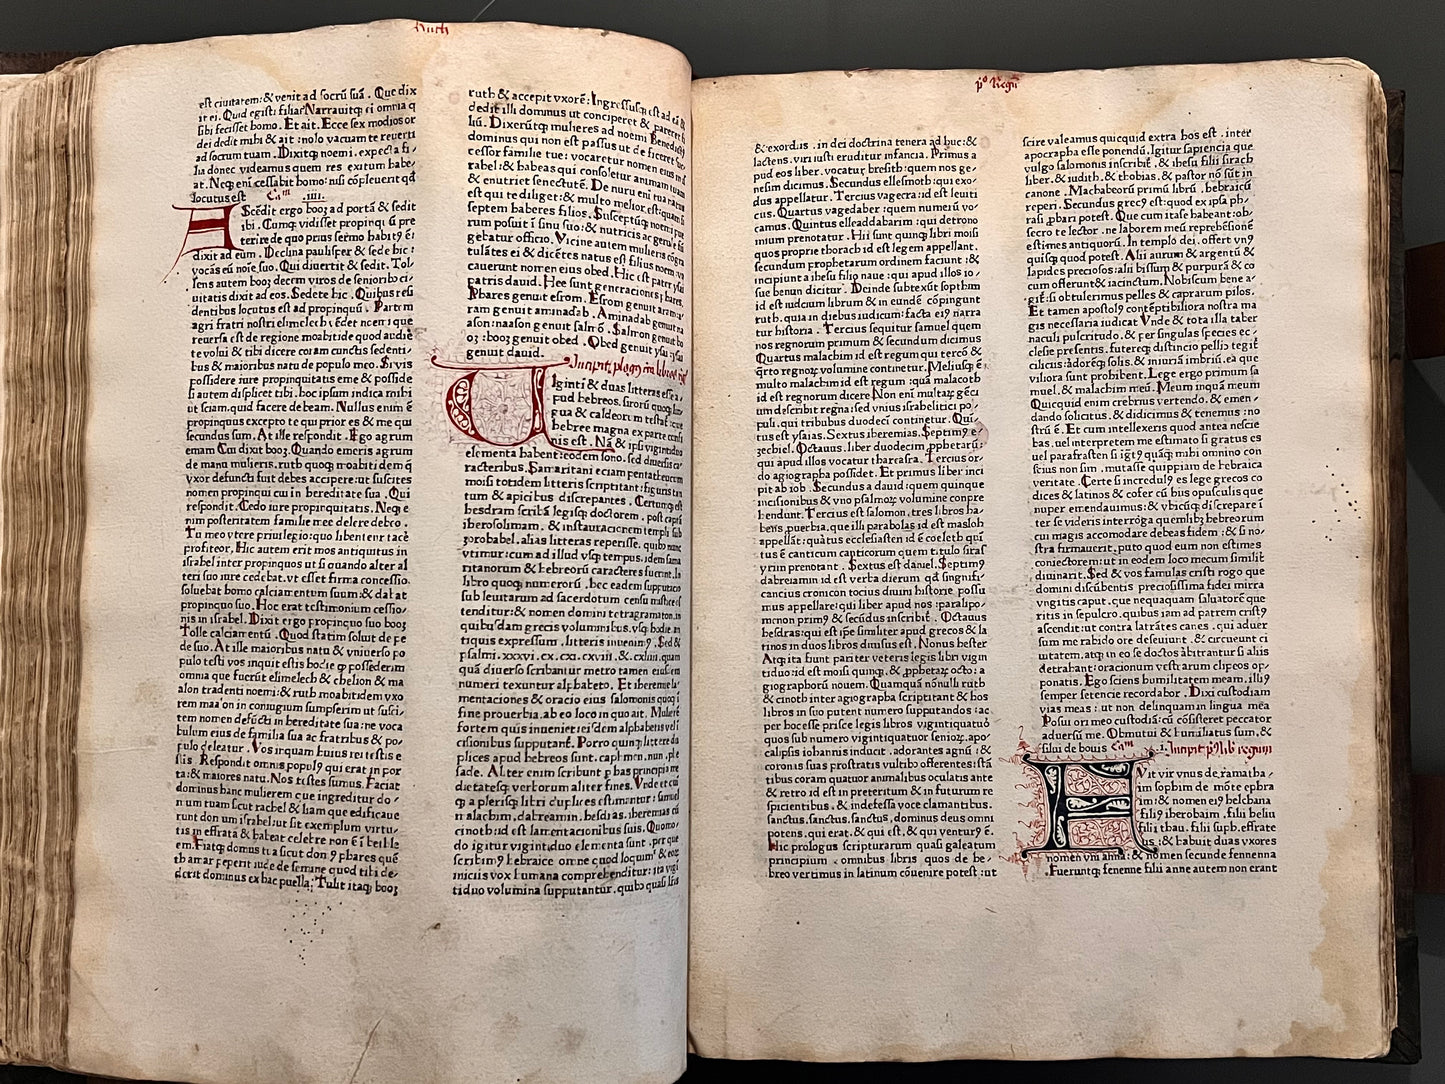 Ruth
est ciuitatem: & venit ad socrũ suã. Que dix
it ei. Quid egisti filia? Narrauitq; ei omnia q
sibi fecisset homo. Et ait. Ecce sex modios or
dei dedit mihi & ait: nolo vacuam te reuerti
ad socrum tuam. Dixitq; noemi. expecta fi
lia donec videamus quem res exitum habe
at. Neq; eni cessabit homo: nisi cõpleuerit qd
locutus est Cam .iiii.
AScẽdit ergo booz ad portã & sedit
ibi. Cumq; vidisset propinqũ pre
terire de quo prius sermo habit9 ẽ:
dixit ad eum. Declina paulisper & sede hic:
vocãs eũ noĩe suo. Qui diuertit & sedit. Tol
lens autem booz decem viros de senioribo ci
uitatis dixit ad eos. Sedete hic. Quibus resi
dentibus locutus est ad propinquũ. Partem
agri fratri nostri elimelech vẽdet noemi que
reuersa est de regione moabitide quod audiẽ
te volui & tibi dicere coram cunctis sedenti
bus & maioribus natu de populo meo. Si vis
possidere iure propinquitatis eme & posside
si autem displicet tibi. hoc ipsum indica mihi
ut sciam. quid facere debeam. Nullus enim ẽ
propinquus excepto te qui prior es & me qui
secundus sum. At ille respondit. Ego agrum
emam Cui dixit booz. Quando emeris agrum
de manu mulieris. ruth quoq; moabitidem q
vxor defuncti fuit debes accipere: ut suscites
nomen propinqui cui in hereditate sua. Qui
respondit. Cedo iure propinquitatis. Neq; e
nim posteritatem familie mee delere debeo.
Tu meo vtere priuilegio: quo libenter tacẽ
profiteor. Hic autem erit mos antiquitus in
israhel inter propinquos ut si quando alter al
teri suo iure cedebat. vt esset firma concessio.
soluebat homo calciamentum suum: & dabat
propinquo suo. Hoc erat testimonium cessio
nis in israhel. Dixit ergo propinquo suo booz
Tolle calciamentũ. Quod statim soluit de pe
de suo. At ille maioribus natu & vniuerso po
pulo testi vos inquit estis hodie q possederim
omnia que fuerũt elimelech & chelion & ma
alon tradenti noemi: & ruth moabitidem vxo
rem maalon in coniugium sumpserim ut susci
tem nomen defũcti in hereditate sua: ne voca
bulum eius de familia sua ac fratribus & po
pulo deleatur. Vos inquam huius rei testis e
stis. Respondit omnis popul9 qui erat in por
ta: & maiores natu. Nos testes sumus. Faciat
dominus hanc mulierem que ingreditur do
num tuam sicut rachel & liam que edificaue
runt domum israhel: ut sit exemplum virtu
tis in effrata & habeat celebre nomẽ ĩ bethle
em. Fiatq; domus tua sicut domus phares quẽ
thamar peperit iude de semine quod tibi de
derit dominus ex hac puella: Tulit itaq; booz
ruth & accepit vxorẽ: Ingressusq; est ad eã &
dedit illi dominus ut conciperet & pareret fi
liũ. Dixerũtq; mulieres ad noemi Benedict9
dominus qui non est passus ut deficeret suc
cessor familie tue: vocaretur nomen eius in is
rahel: & habeas qui consoletur animam tuam
& enutriet senectutẽ. De nuru eni tua natus
est qui te diliget: & multo melior est: quam si
septem haberes filios. Susceptũq; noemi pue
rum posuit ĩ sinu suo: & nutricis ac gerule fũ
gebatur officio. Vicine autem mulieres cõgra
tulãtes ei & dicẽtes natus est filius noemi vo
cauerunt nomen eius obed. Hic est pater ysai
patris dauid. Hee sunt generaciones phares.
Phares genuit esrom. Esrom genuit aram: a
ram genuit aminadab. Aminadab genuit na
ason: naason genuit salmõ. Salmon genuit bo
oz: booz genuit obed. Obed genuit ysai: ysai
genuit dauid.
Incipit plogus in libros reg
VIginti & duas litteras esse a
pud hebreos. sirorũ quoq; lin
gua & caldeorum testat: que
hebree magna ex parte confi
nis est. Nã & ipsi viginti duo
elementa habent: eodem sono. sed diuersis ca
racteribus. Samaritani eciam pentatheucum
moisi totidem litteris scriptitant: figuris tan
tum & apicibus discrepantes. Certumq; est
hesdram scribã legisq; doctorem. post captã
iherosolimam. & instauracionem templi sub
zorobabel. alias litteras reperisse. quibo nunc
vtimur: cum ad illud vsq; tempus. idem sama
ritanorum & hebreorũ caracteres fuerint. In
libro quoq; numerorũ. hec eadem supputacio
sub leuitarum ad sacerdotum censu mistice os
tenditur: & nomen domini tetragramaton. in
quibusdam grecis volumibus. vsq; hodie. an
tiquis expressum. litteris inuenim9. Sed &
psalmi. xxxvi. cx. cxi. cxviii. &. cxliiii. quam
quã diuerso scribantur metro tamen eiusdem
numeri texuntur alphabeto. Et iheremie la
mentaciones & oracio eius salomonis quoq; ĩ
fine prouerbia. ab eo loco in quo ait. Mulierẽ
fortem quis inueniet: eisdem alphabetis vel ĩ
cisionibus supputant. Porro quinq; littere du
plices apud hebreos sunt. caph. men. nun. phe
sade. Aliter enim scribunt p has principia me
dietatesq; verborum aliter fines. Vnde et quĩ
q; a plerisq; libri duplices estimantur: samuel
malachim. dabreamin. hesdras. iheremias cũ
cinoth: id est lamentacionibus suis. Quomo
do igitur viginti duo elementa sunt. per que
scribim9 hebraice omne quod loquim & eoꝝ
iniciis vox humana comprehenditur: ita vigi
tiduo volumina supputantur. quibo quasi lĩis
po Regũ
& exordiis. in dei doctrina tenera ad huc: &
lactens. viri iusti eruditur infancia. Primus a
pud eos liber. vocatur bresith: quem nos ge
nesim dicimus. Secundus ellesmoth: qui exo
dus appellatur. Tercius vagecra: id est leuiti
cus. Quartus vagedaber: quem numerũ vo
camus. Quintus elleaddabarim: qui detrono
mium prenotatur. Hii sunt quinq; libri moisi
quos proprie thorach id est legem appellant.
secundum prophetarum ordinem faciunt: &
incipiunt a ihesu filio naue: qui apud illos io
sue benun dicitur. Deinde subtexũt sopthim
id est iudicum librum & in eundẽ cõpingunt
ruth. quia in diebus iudicum: facta ei9 narra
tur historia. Tercius sequitur samuel quem
nos regnorum primum & secundum dicimus
Quartus malachim id est regum qui tercõ &
q̃rto regnoꝝ volumine continetur. Melius q; ẽ
multo malachim id est regum: quã malacoth
id est regnorum dicere Non eni multaꝝ gẽci
um describit regna: sed vnius israhelitici po
puli. qui tribubus duodeci continetur. Quĩ
tus est ysaias. Sextus iheremias. Septim9 e
zechiel. Octauus. liber duodecim pphetarũ:
qui apud illos vocatur tharcasra. Tercius or
do agiographa possidet. Et primus liber inci
pit ab iob. Secundus a dauid: quem quinque
incisionibus & vno psalmoꝝ volumine conpre
hendunt. Tercius est salomon. tres libros ha
bens. puerbia. que illi parabolas id est masloth
appellãt: quãtus ecclesiasten id ẽ coeleth quĩ
tus ẽ canticum canticorum quem titulo siras
yrim prenotant. Sextus est daniel. Septim9
dabreiamin id est verba dierum qd singnifi
cancius cronicon tocius diuini historie possu
mus appellare: qui liber apud nos: paralipo
menon prim9 & secũdus inscribit. Octauus
hesdras: qui est ipse similiter apud grecos & la
tinos in duos libros diuisus est. Nonus hester
Atq; ita fiunt pariter veteris legis libri vigin
tiduo: id est moisi quinq;. & pphetaꝝ octo: a
giographorũ nouem. Quamquã nõnulli ruth
& cinoth inter agiographa scriptitant & hos
libros in suo putent numero supputandos: ac
per hoc esse prisce legis libros vigintiquatuor
quos sub numero vigintiquatuor senioꝝ. apo
calipsis iohannis inducit. adorantes agnũ: &
coronis suas prostratis vultibo offerentes: stã
tibus coram quatuor animalibus oculatis ante
& retro id est in preteritum & in futurum re
spicientibus. & indefessa voce clamantibus.
sanctus. sanctus. sanctus. dominus deus omni
potens. qui erat. & qui est. & qui ventur9 ẽ.
Hic prologus scripturarum quasi galeatum
principium. omnibus libris quos de he
breo vertimus in latinum cõuenire potest: ut
scire valeamus quicquid extra hos est. inter
apocrapha esse ponendũ. Igitur sapiencia que
vulgo salomonis inscribit. & ihesu filii sirach
liber. & iudith. & thobias. & pastor nõ sũt in
canone. Machabeorũ primũ librũ. hebraicũ
reperi. Secundus grec9 est: quod ex ipsa ph
rasi phari potest. Que cum itase habeant: ob
secro te lector. ne laborem meũ reprehẽsionẽ
estimes antiquorũ. In templo dei. offert vn9
quisq; quod potest. Alii aurum & argentũ &
lapides preciosos: alii bissum & purpurã & co
cum offerunt & iacinctum. Nobiscum bene a
git: si obtulerimus pelles & caprarum pilos.
Et tamen apostol9 contẽptibiliora nostra ma
gis necessaria iudicat Vnde & tota illa taber
naculi pulcritudo. & per singulas species ec
clesie presentis. futureq; distincio pellib; tegit &
cilicus: ãdorẽq; solis. & iniuriã imbriũ. ea que
viliora sunt prohibent. Lege ergo primum sa
mul. & malachim meũ. Meum inquã meum
Quicquid enim crebrius vertendo. & emen
dando solicitus. & didicimus & tenemus: no
strũ ẽ. Et cum intellexeris quod antea nescie
bas. uel interpretem me estimato si gratus es
uel parafrasten si ĩgrat9 quãq; mihi omnino con
scius non sim. mutasse quippiam de hebraica
veritate. Certe si incredul9 es lege grecos co
dices & latinos & cofer cũ hiis opusculis que
nuper emendauimus: & vbicũq; discrepare ĩ
ter se videris interrõga quemlibꝫ hebreorum
cui magis accomodare debeas fidem: & si no
stra firmauerit. puto quod eum non estimes
coniectorem: ut in eodem loco mecum similit
diuinarit. Sed & vos famulas cristi rogo que
domini discũbentis preciosissima fidei mirra
vngitis caput. que nequaquam saluatorẽ que
ritis in sepulcro. quibus iam ad patrem crist9
ascendit: ut contra latrãtes canes. qui aduer
sum me rabido ore deseuiunt. & circueunt ci
uitatem. atq; in eo se doctos ãbitrantur si aliis
detrahant: oracionum vestrarum clipeos op
ponatis. Ego sciens humilitatem meam. illi9
semper setencie recordabor. Dixi custodiam
vias meas: ut non delinquam in lingua mea
Posui ori meo custodiã: cũ cõsisteret peccator
aduersũ me. Obmutui & humiliatus sum. &
silui de bonis Cam .i. Incipit p9 lib regum
FVit vir vnus de ramatha
im sophim de mõte ephra
im: & nomen ei9 helchana
fili9 iherobaim. filii heliu
filii thau. filii suph. effrate
us: & habuit duas vxores
nomen vni anna: & nomen secunde fennenna
Fueruntq; fenenne filii anne autem non erant